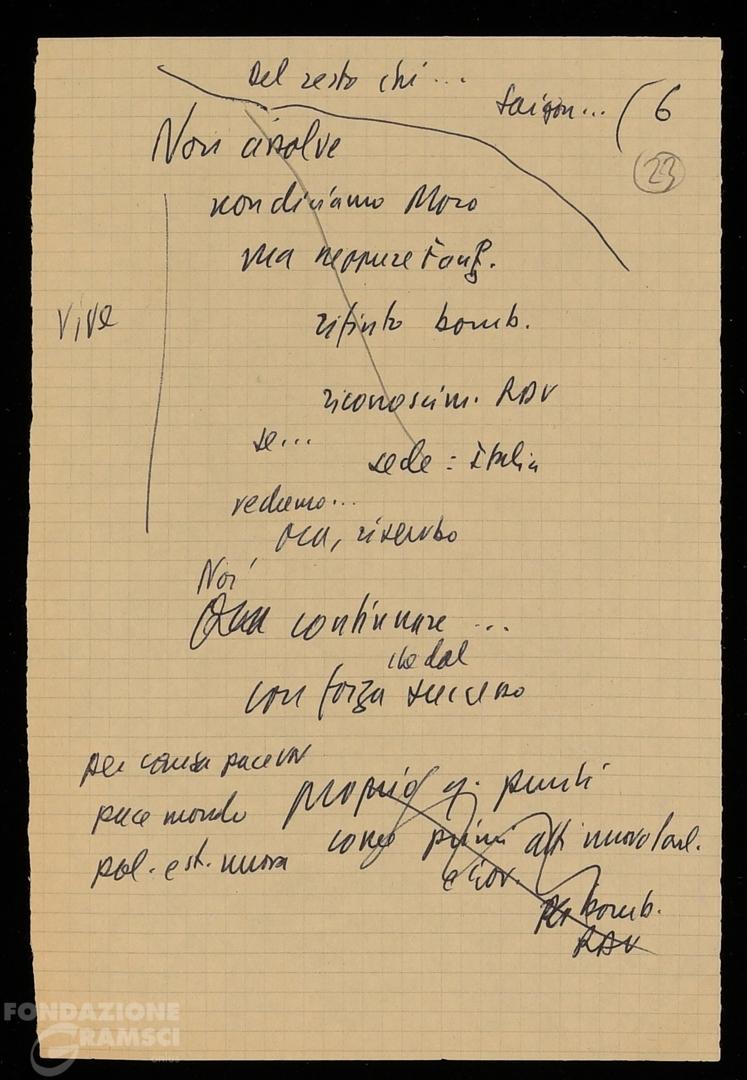 Del resto chi...
Saigon... (6
23
Non assolve
non diciamo Moro
ma neppure Fanf.
vive
rifiuto bomb.
riconoscim. RDV
se...
sede: Italia
vedremo...
Ora, riserbo
Noi
continuare ...
che dal
con forza successo
per causa pace VN
pace mondo
pol. est. nuova
proprio q. punti
come primi atti nuovo Parl.
e Gov.
bomb.
RDV
FONDAZIONE
GRAMSCI
onlus